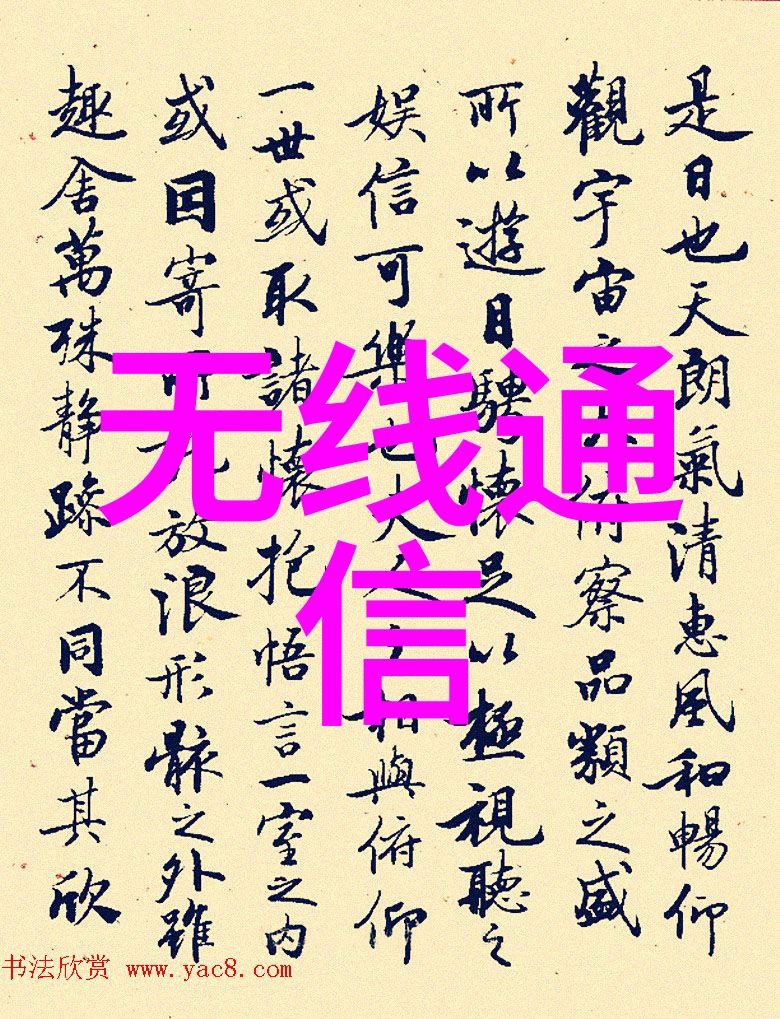 是日也天朗氣清惠風和暢仰
觀宇宙之大俯察品類之盛
所以遊目騁懷足以極視聽之
娛信可樂也夫人之相與俯仰
一世或取諸懷抱悟言一室之内
或因寄所託放浪形骸之外雖
趣舍萬殊静躁不同當其欣
无线通
信
书法欣赏 www.yac8.com